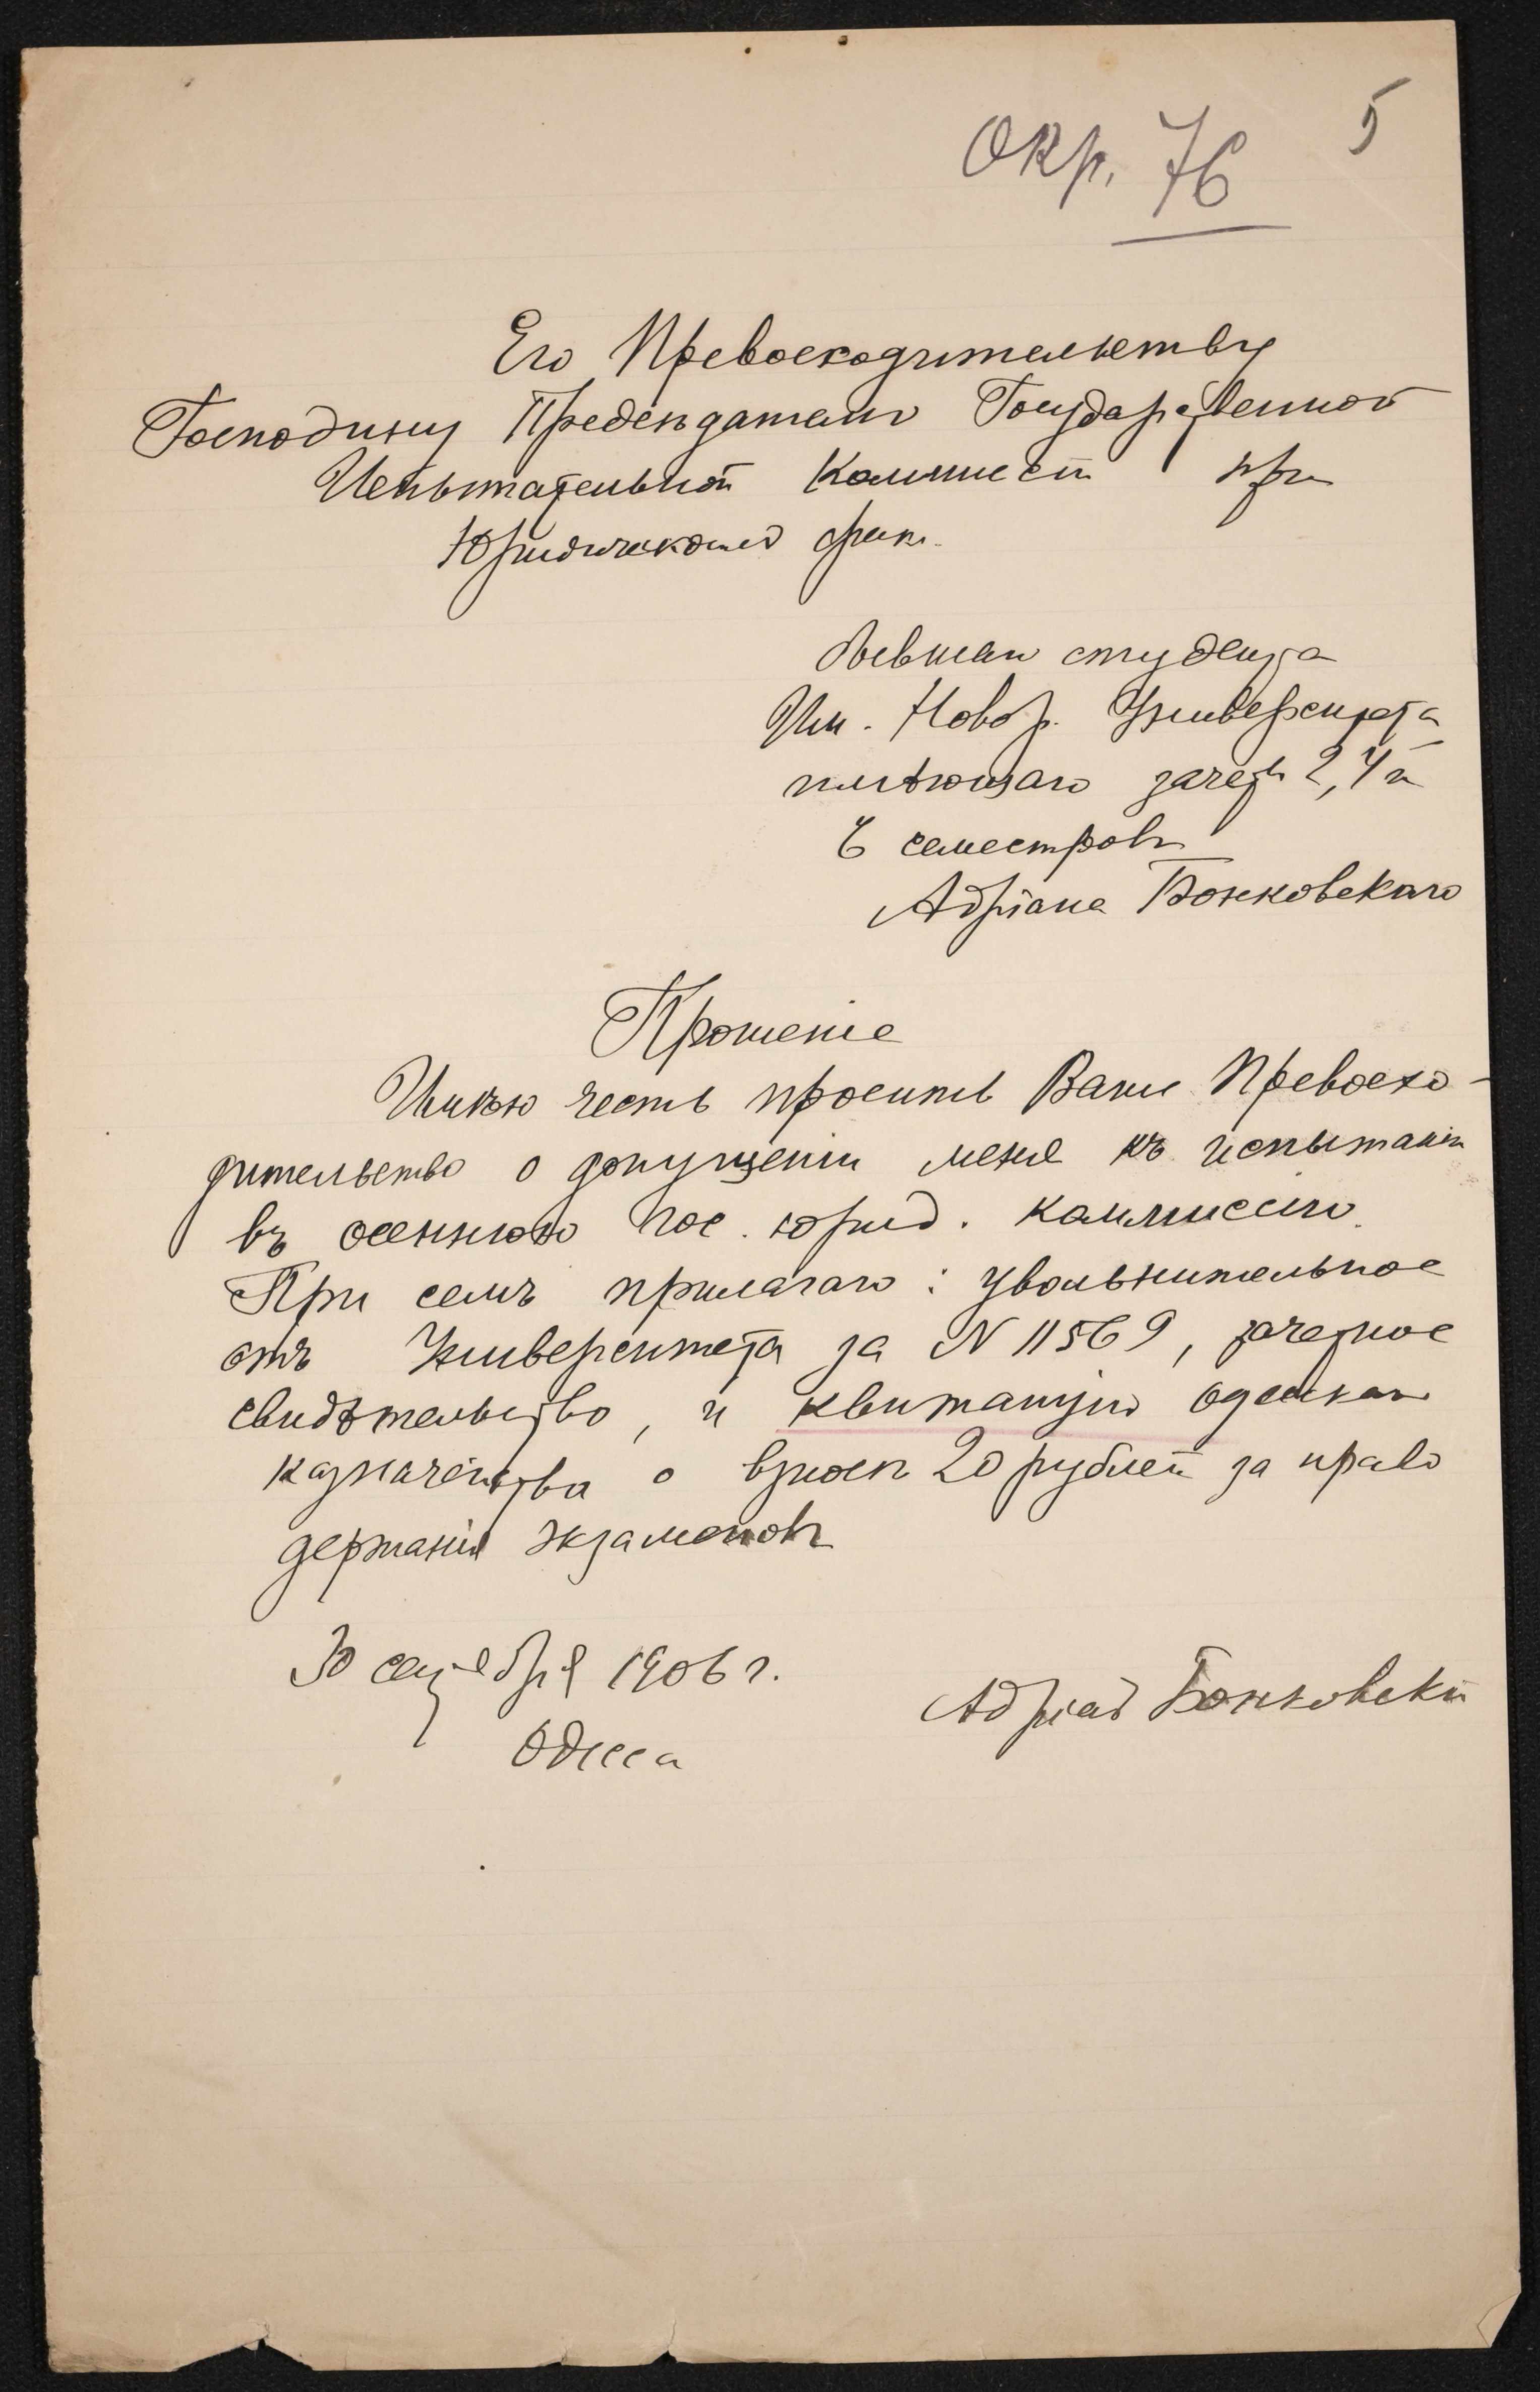 5
Окр. 76
Его Превосходительству
Господину Председателю Государственной
Испытательной Коммисіи при
Юридическомъ фак.
бывшаго студента
Им. Новор. Университета
имѣющаго зачетъ 2, 4 и
6 семестровъ
Адріана Бонковскаго
Прошеніе
Имѣю честь просить Ваше Превосхо-
дительство о допущеніи меня къ испытанію
въ осеннюю гос. юрид. коммиссію.
При семъ прилагаю: увольнительное
отъ Университета за N 11569, зачетное
свидѣтельство, и квитанцію Одесскаго
казначейства о взносѣ 20 рублей за право
держанія экзаменовъ
30 сентября 1906 г.
Адріан Бонковскій
Одесса